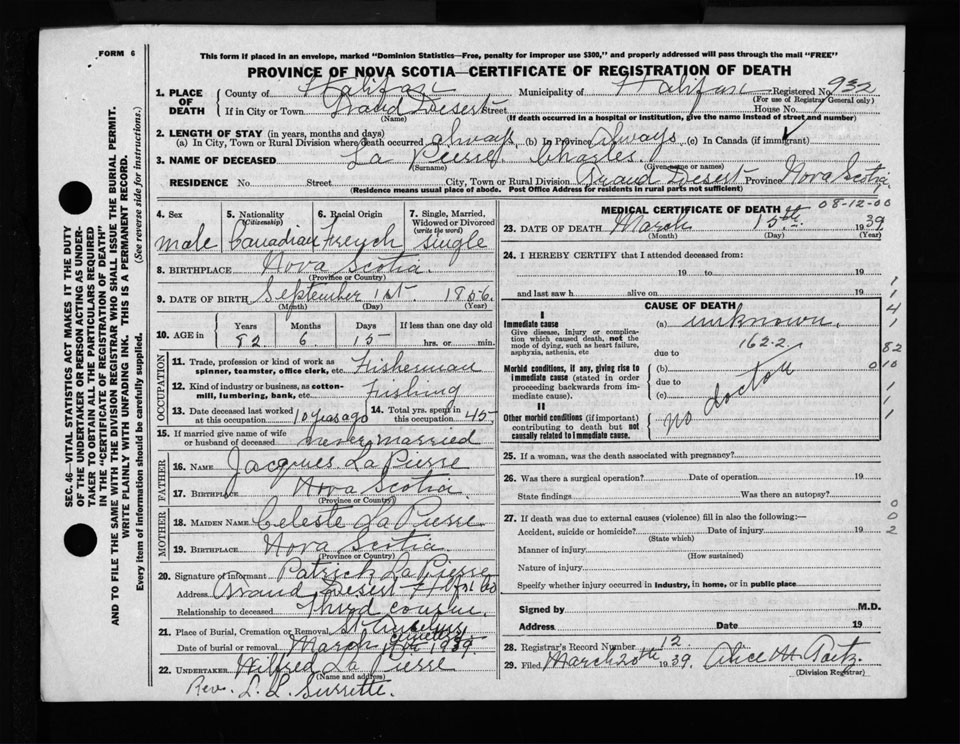 FORM 6
This form if placed in an envelope, marked "Dominion Statistics—Free, penalty for improper use $300," and properly addressed will pass through the mail "FREE"
PROVINCE OF NOVA SCOTIA—CERTIFICATE OF REGISTRATION OF DEATH
1. PLACE OF DEATH
County of Halifax Municipality of Halifax Registered No. 932
(For use of Registrar General only)
If in City or Town Grand Desert Street House No.
(Name) (If death occurred in a hospital or institution, give the name instead of street and number)
2. LENGTH OF STAY (in years, months and days)
(a) In City, Town or Rural Division where death occurred always (b) In Province Always (c) In Canada (if immigrant)
3. NAME OF DECEASED La Pierre Charles
(Surname) (Given name or names)
RESIDENCE No. Street City, Town or Rural Division Grand Desert Province Nova Scotia
(Residence means usual place of abode. Post Office Address for residents in rural parts not sufficient)
4. Sex
male
5. Nationality (Citizenship)
Canadian
6. Racial Origin
French
7. Single, Married, Widowed or Divorced (write the word)
single
8. BIRTHPLACE Nova Scotia
(Province or Country)
9. DATE OF BIRTH September 1st. 1856
(Month) (Day) (Year)
10. AGE in Years Months Days If less than one day old
82 6 15 hrs. or min.
OCCUPATION
11. Trade, profession or kind of work as spinner, teamster, office clerk, etc. Fisherman
12. Kind of industry or business, as cotton-mill, lumbering, bank, etc. Fishing
13. Date deceased last worked at this occupation 10 years ago
14. Total yrs. spent in this occupation 45
15. If married give name of wife or husband of deceased never married
FATHER
16. NAME Jacques La Pierre
17. BIRTHPLACE Nova Scotia
(Province or Country)
MOTHER
18. MAIDEN NAME Celeste La Pierre
19. BIRTHPLACE Nova Scotia
(Province or Country)
20. Signature of informant Patrick La Pierre
Address Grand Desert Hfx Co
Relationship to deceased Third cousin
21. Place of Burial, Cremation or Removal St Anselms Cemetery
Date of burial or removal March 1939
22. UNDERTAKER Wilfred La Pierre
(Name and address)
Rev. L. L. Surrette.
MEDICAL CERTIFICATE OF DEATH 08-12-00
23. DATE OF DEATH March 15th. 1939
(Month) (Day) (Year)
24. I HEREBY CERTIFY that I attended deceased from:
19 to 19
and last saw h alive on 19
CAUSE OF DEATH
I
Immediate cause
Give disease, injury or complication which caused death, not the mode of dying, such as heart failure, asphyxia, asthenia, etc
(a) unknown.
162-2
due to
Morbid conditions, if any, giving rise to immediate cause (stated in order proceeding backwards from immediate cause).
(b)
due to
(c)
II
Other morbid conditions (if important) contributing to death but not causally related to immediate cause.
no doctor
1
1
4
1
82
0 10
1
1
1
25. If a woman, was the death associated with pregnancy?
26. Was there a surgical operation? Date of operation 19
State findings Was there an autopsy?
27. If death was due to external causes (violence) fill in also the following:—
Accident, suicide or homicide? Date of injury 19
(State which)
Manner of injury
(How sustained)
Nature of injury
Specify whether injury occurred in industry, in home, or in public place
0
0
2
Signed by M.D.
Address Date 19
28. Registrar's Record Number 12
29. Filed March 20th 1939. Alice H. Gaetz.
(Division Registrar)
SEC. 46—VITAL STATISTICS ACT MAKES IT THE DUTY
OF THE UNDERTAKER OR PERSON ACTING AS UNDER-
TAKER TO OBTAIN ALL THE PARTICULARS REQUIRED
IN THE "CERTIFICATE OF REGISTRATION OF DEATH"
AND TO FILE THE SAME WITH THE DIVISION REGISTRAR WHO SHALL ISSUE THE BURIAL PERMIT.
WRITE PLAINLY WITH UNFADING INK. THIS IS A PERMANENT RECORD.
Every item of information should be carefully supplied. (See reverse side for instructions.)